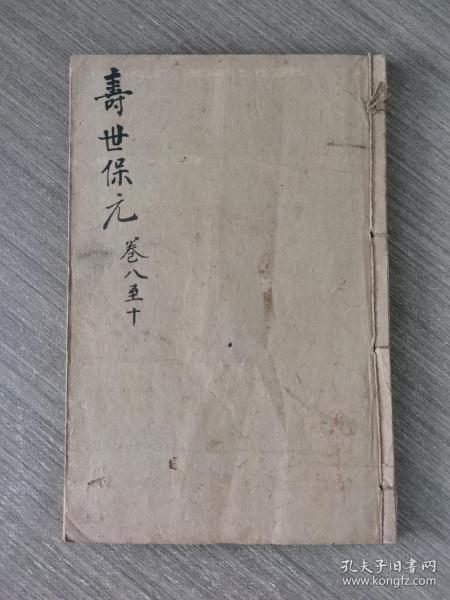 壽世保元
卷八至十
孔夫子旧书网
www.kongfz.com